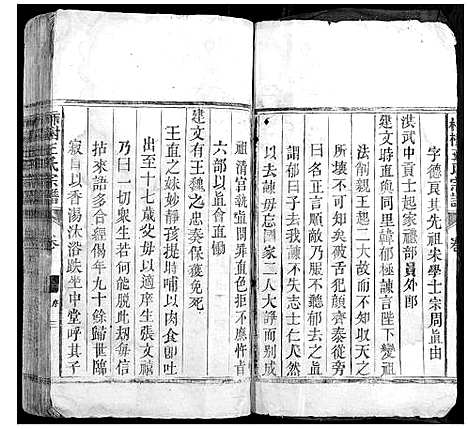 王氏宗譜
字德貞其先祖宋學士宗周直由
洪武中貢士起家禮部員外郎
建文時直與同里韓郁極諫言陛下變祖
法削親王起二大故而不知收天之
所壞不可興也矣破舌犯顏齊泰從旁
曰名正言順敵乃服不聽郁去之直
謂郁曰子去我諫不失志士仁人然
以去諫毋忘國家二人大諍而別成
祖清宮執直問罪直色不
六部以直會直慟
建文有王魏之忠奏保獲免死
王直之妹妙靜孩提時哺以肉食即吐
出至十七歲父毋以適庠生張文禎
乃曰一切眾生若何能脫此刼毎信
口拈來語多合經偈年九十餘歸世臨
寂自以香湯沐浴趺坐中堂呼其子
王氏宗譜
卷
序